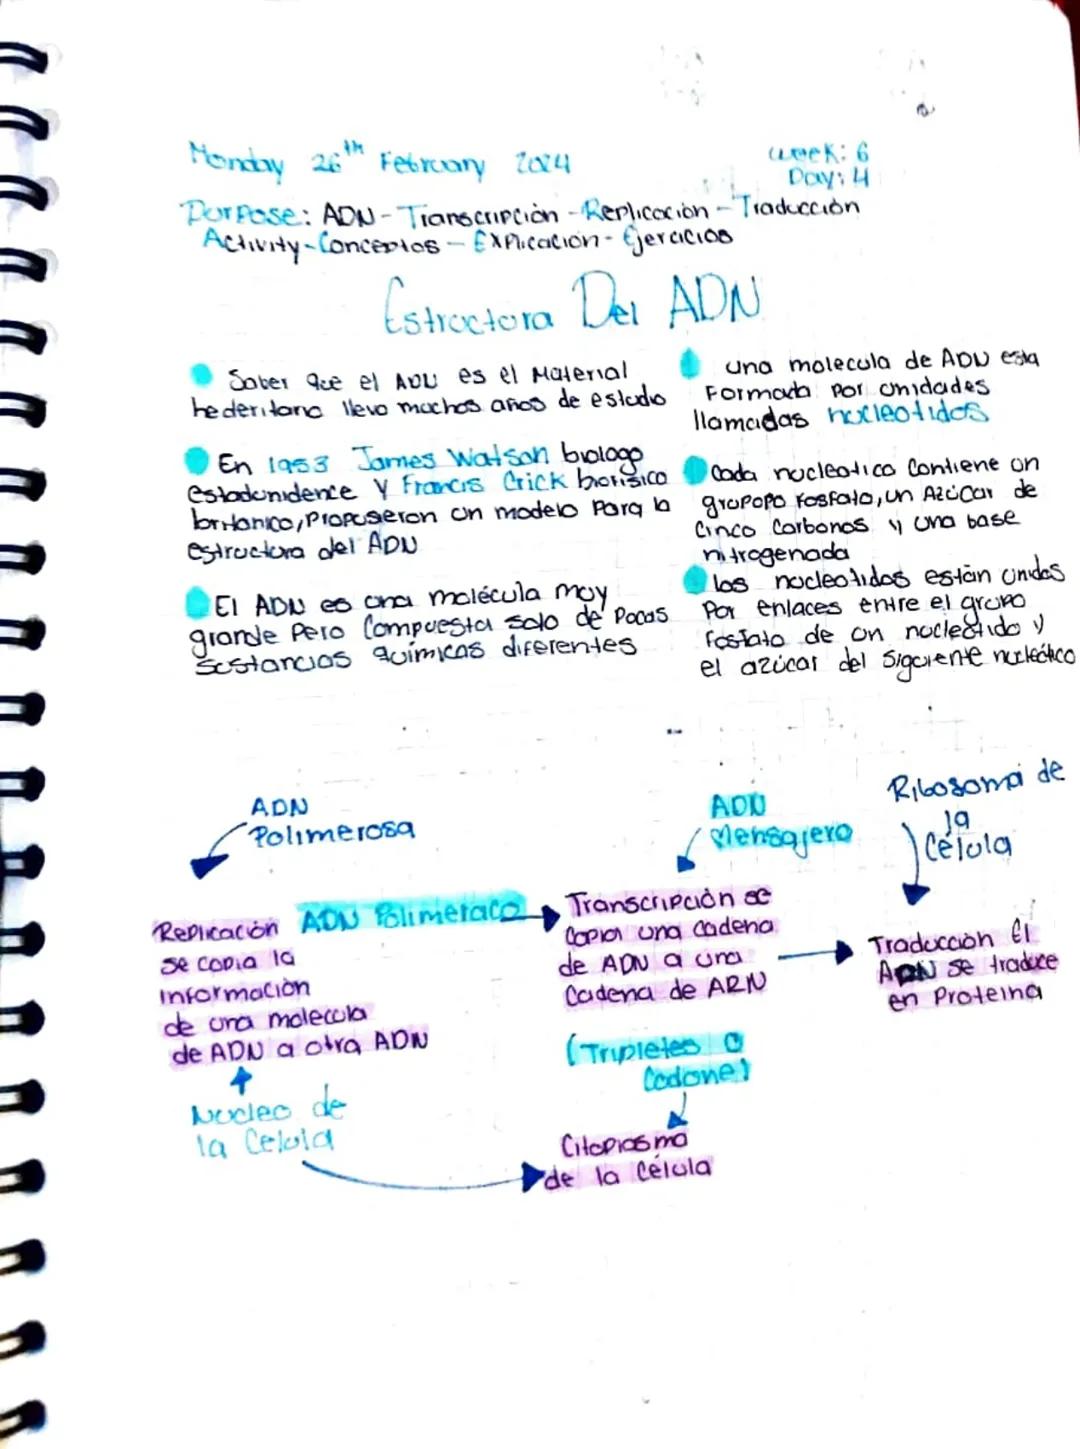 Monday 26th February 2024
week: 6
Day: 4
Purpose: ADN - Transcripción - Replicación - Traducción
Activity - Conceptos - Explicación - Ejercicios
Estructura Del ADN
Saber que el ADN es el Material
hederitario llevo muchos años de estudio
En 1953 James Watson biologo
estadunidence y Francis Crick biofisico
britanico, Propuseron un modelo Para la
estructura del ADN
El ADN es una molécula muy
grande Pero Compuesta solo de Pocas
sustancias químicas diferentes
una molecula de ADN esta
Formada por unidades
llamadas nucleotidos
Cada nucleotico Contiene un
grupopo Fosfato, un Azúcar de
Cinco Carbonos y una base
nitrogenada
los nucleotidos están unidos
Por enlaces entre el grupo
fosfato de un nucleótido y
el azúcar del siguiente nucleótico
ADN
Polimerosa
ADN
Mensajero
Ribosoma de
la
Célula
Replicación
se copia la
información
de una molecula
de ADN a otra ADN
ADN Polimeraco
Transcripción se
Copia una cadena
de ADN a una
Cadena de ARN
Traducción El
ADN se traduce
en Proteina
(Tripletes o
Codone)
Nucleo de
la Celula
Citoplasma
de la Célula